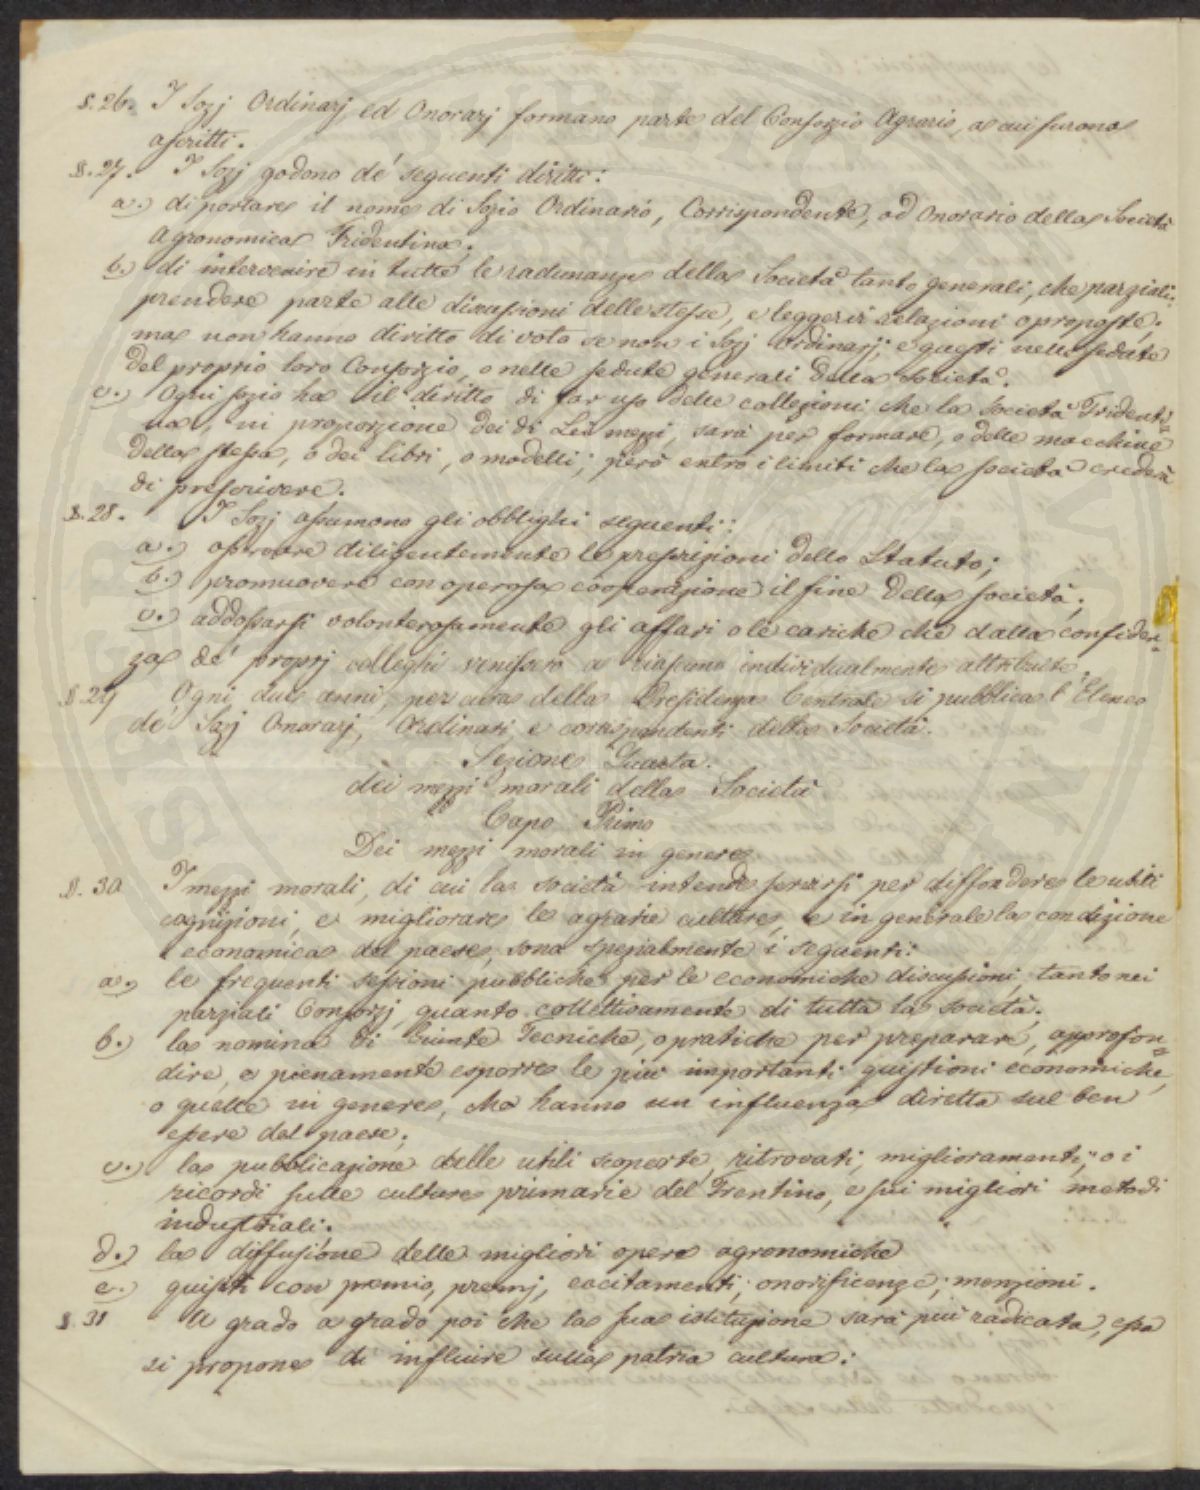 §. 26. I Sozj Ordinarj ed Onorarj formano parte del Consorzio Agrario, a cui furono
ascritti.
§. 27. I Sozj godono de' seguenti diritti:
a.) di portare il nome di Sozio Ordinario, Corrispondente, od Onorario della Società
Agronomica Tridentina;
b.) di intervenire in tutte le radunanze della Società tanto generali, che parziali:
prendere parte alle discussioni delle stesse, e leggervi relazioni o proposte;
ma non hanno diritto di voto se non i Sozj ordinarj; e questi nelle sedute
del proprio loro Consorzio, o nelle sedute generali della società.
c.) Ogni sozio ha il diritto di far uso delle collezioni che la società Tridenti=
na, in proporzione dei di Lei mezzi, sarà per formare, o delle macchine
della stessa, o dei libri, o modelli; però entro i limiti che la società crederà
di prescrivere.
§. 28. I Sozj assumono gli obblighi seguenti:
a.) osservare diligentemente le prescrizioni dello Statuto;
b.) promuovere con operosa cooperazione il fine della società;
c.) addossarsi volonterosamente gli affari o le cariche che dalla confiden=
za de' proprj colleghi venissero a ciascuno individualmente attribuite.
§ 29 Ogni due anni, per cura della Presidenza Centrale si pubblica l'Elenco
de' Sozj Onorarj, Ordinari e corrispondenti della Società.
Sezione Quarta.
dei mezzi morali della Società
Capo Primo
Dei mezzi morali in genere
§. 30 I mezzi morali, di cui la società intende servirsi per diffondere le utili
cognizioni, e migliorare le agrarie culture, e in generale la condizione
economica del paese, sono spezialmente i seguenti:
a.) le frequenti sessioni pubbliche per le economiche discussioni, tanto nei
parziali Consorzj, quanto collettivamente di tutta la società;
b.) la nomina di Giunte Tecniche, o pratiche per preparare, approfon=
dire, e pienamente esporre le più importanti quistioni economiche,
o quelle in genere, che hanno un influenza diretta sul ben
essere del paese;
c.) la pubblicazione delle utili scoperte, ritrovati, miglioramenti, o i
ricordi sulle culture primarie del Trentino, e sui migliori metodi
industriali;
d.) la diffusione delle migliori opere agronomiche
e.) quisiti con premio, premj, eccitamenti; onorificenze; menzioni.
§. 31 A grado a grado poi che la sua istituzione sarà più radicata, essa
si propone di influire sulla patria cultura: